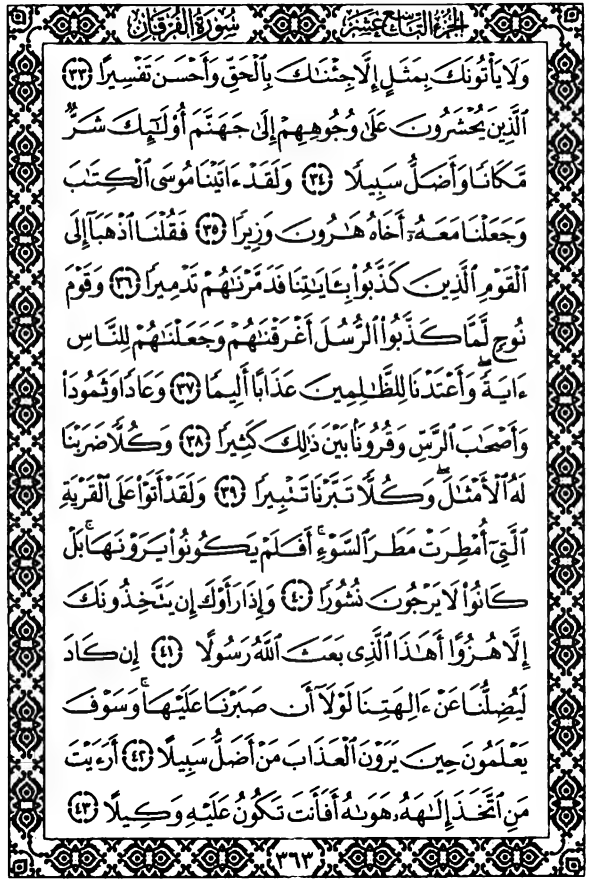 الجزء التاسع عشر
سورة الفرقان
وَلَا يَأْتُونَكَ بِمَثَلٍ إِلَّا جِئْنَٰكَ بِٱلْحَقِّ وَأَحْسَنَ تَفْسِيرًا ﴿٣٣﴾
ٱلَّذِينَ يُحْشَرُونَ عَلَىٰ وُجُوهِهِمْ إِلَىٰ جَهَنَّمَ أُوْلَٰٓئِكَ شَرٌّ
مَّكَانًا وَأَضَلُّ سَبِيلًا ﴿٣٤﴾ وَلَقَدْ ءَاتَيْنَا مُوسَى ٱلْكِتَٰبَ
وَجَعَلْنَا مَعَهُۥٓ أَخَاهُ هَٰرُونَ وَزِيرًا ﴿٣٥﴾ فَقُلْنَا ٱذْهَبَآ إِلَى
ٱلْقَوْمِ ٱلَّذِينَ كَذَّبُوا۟ بِـَٔايَٰتِنَا فَدَمَّرْنَٰهُمْ تَدْمِيرًا ﴿٣٦﴾ وَقَوْمَ
نُوحٍ لَّمَّا كَذَّبُوا۟ ٱلرُّسُلَ أَغْرَقْنَٰهُمْ وَجَعَلْنَٰهُمْ لِلنَّاسِ
ءَايَةً ۖ وَأَعْتَدْنَا لِلظَّٰلِمِينَ عَذَابًا أَلِيمًا ﴿٣٧﴾ وَعَادًا وَثَمُودَا۟
وَأَصْحَٰبَ ٱلرَّسِّ وَقُرُونًۢا بَيْنَ ذَٰلِكَ كَثِيرًا ﴿٣٨﴾ وَكُلًّا ضَرَبْنَا
لَهُ ٱلْأَمْثَٰلَ ۖ وَكُلًّا تَبَّرْنَا تَتْبِيرًا ﴿٣٩﴾ وَلَقَدْ أَتَوْا۟ عَلَى ٱلْقَرْيَةِ
ٱلَّتِىٓ أُمْطِرَتْ مَطَرَ ٱلسَّوْءِ ۚ أَفَلَمْ يَكُونُوا۟ يَرَوْنَهَا ۚ بَلْ
كَانُوا۟ لَا يَرْجُونَ نُشُورًا ﴿٤٠﴾ وَإِذَا رَأَوْكَ إِن يَتَّخِذُونَكَ
إِلَّا هُزُوًا أَهَٰذَا ٱلَّذِى بَعَثَ ٱللَّهُ رَسُولًا ﴿٤١﴾ إِن كَادَ
لَيُضِلُّنَا عَنْ ءَالِهَتِنَا لَوْلَآ أَن صَبَرْنَا عَلَيْهَا ۚ وَسَوْفَ
يَعْلَمُونَ حِينَ يَرَوْنَ ٱلْعَذَابَ مَنْ أَضَلُّ سَبِيلًا ﴿٤٢﴾ أَرَءَيْتَ
مَنِ ٱتَّخَذَ إِلَٰهَهُۥ هَوَىٰهُ أَفَأَنتَ تَكُونُ عَلَيْهِ وَكِيلًا ﴿٤٣﴾
٣٦٣